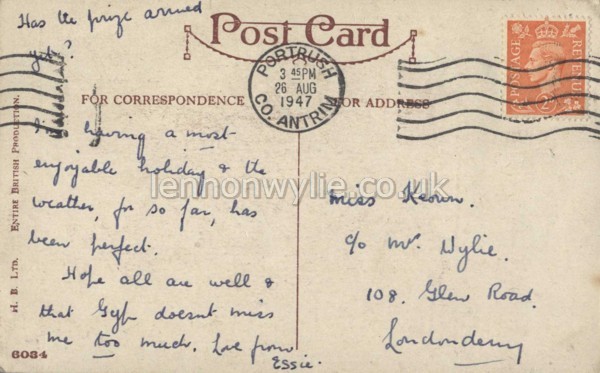 Has the prize arrived
yet?
Post Card
PORTRUSH
3 45 PM
26 AUG
1947
CO. ANTRIM
POSTAGE
REVENUE
2D
FOR CORRESPONDENCE
FOR ADDRESS
I'm having a most
enjoyable holiday & the
weather, for so far, has
been perfect.
Hope all are well &
that Gyp doesnt miss
me too much. Love from
Essie.
Miss Keown.
c/o Mrs Wylie.
108. Glen Road.
Londonderry
lennonwylie.co.uk
H. B. LTD. ENTIRE BRITISH PRODUCTION.
6084